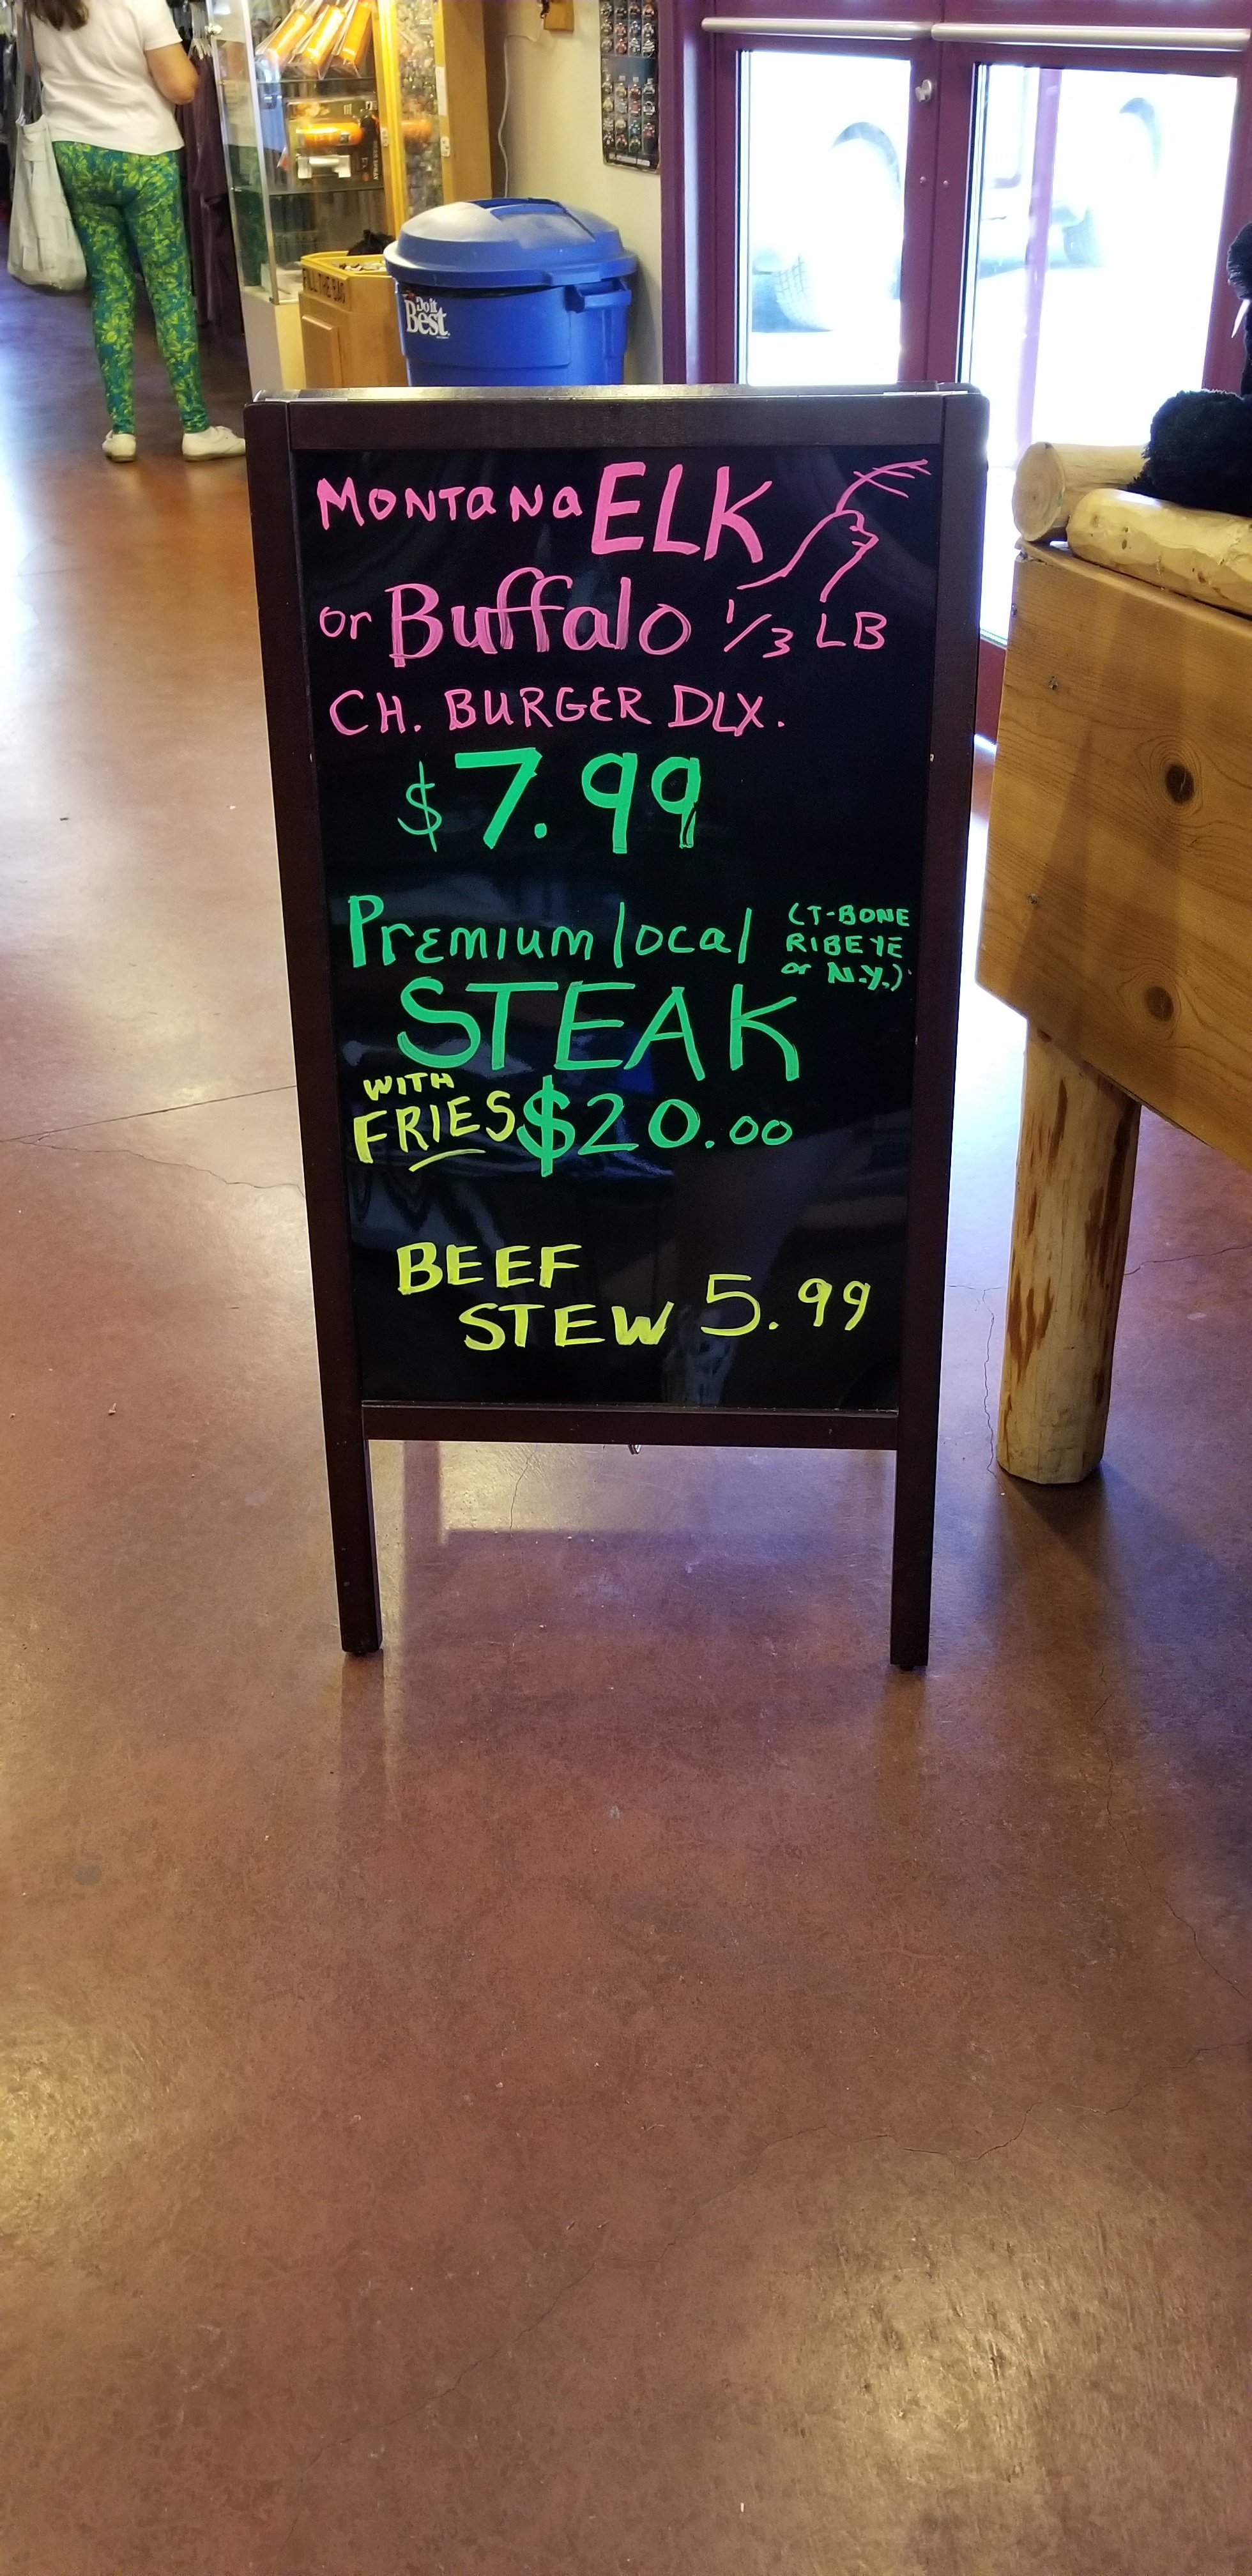 Do it
Best
FILL THE BAG
MONTANA ELK
or Buffalo 1/3 LB
CH. BURGER DLX.
$7.99
Premium local (T-BONE
RIBEYE
or N.Y.)
STEAK
WITH
FRIES $20.00
BEEF
STEW 5.99